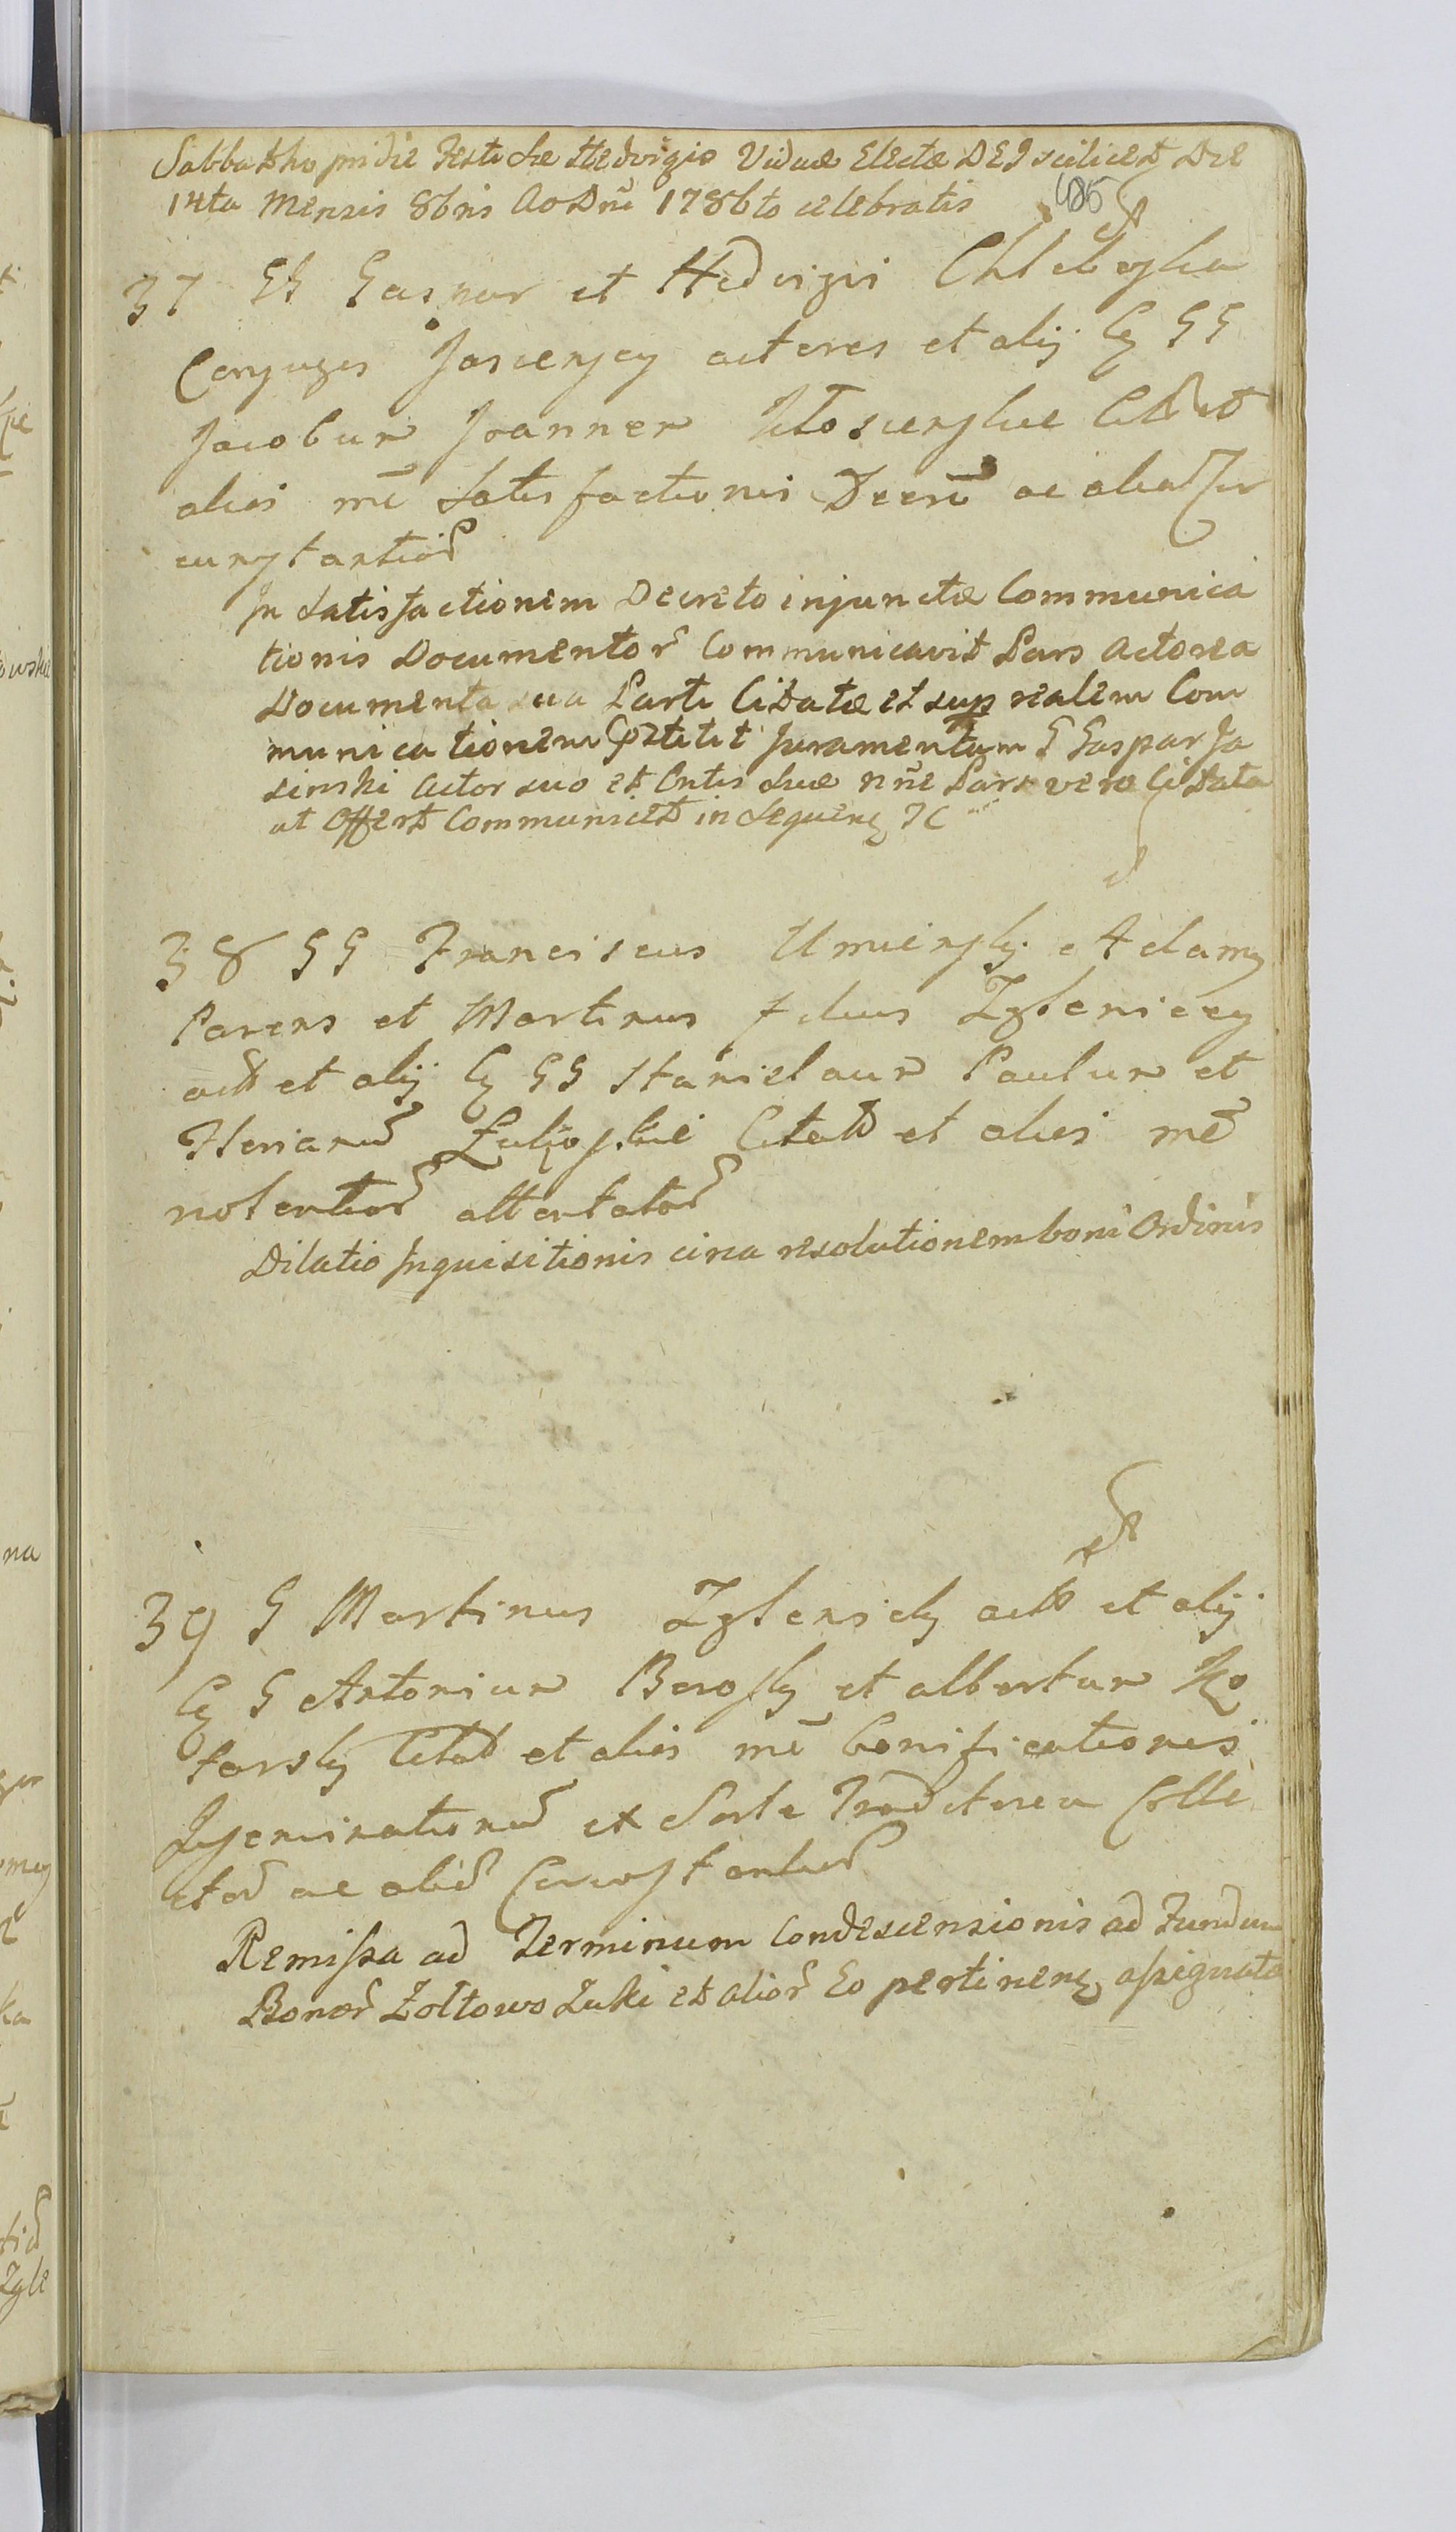 Sabbatho pridie Festi Stae Hedvigis Viduae Electae DEI scilicet Die
14ta Mensis 8bris Ao Dni 1786to celebratis
485
37 GG Gaspar et Hedvigis
Conjuges Jasienscy actores et alij Cz GG
Jacobum Joannem Kłosieńskie Citat et
alios me Satisfactionis Decreti ac aliar Cir
cumstantiar
In Satisfactionem Decreto injunctae Communica
tionis Documentor Communicavit Pars Actorea
Documenta sua Parti Citatae et sup realem Com
municationem Praestitit Juramentum G Gaspar Ja
sinski Actor suo et Cntis Suae nne Pars vero Citata
ut Offert Communicet in Sequenz TC
38 GG Franciscus Umieński Adamus
Parens et Martinus filius Zgleniccy
act et alij Cz GG Stanislaum Paulum et
Citat et alios me
violentiar attentatar
Dilatio Inquisitionis circa resolutionem boni Ordinis
39 G Martinus Zglenicki act et alij
Cz G Antonium et Albertum Ko
tarski Citat et alios me bonificationis
Inseminationum ex Sorte Traditorea Colle
ctar ac aliar Circumstantiar
Remissa ad Terminum Condescensionis ad Fundum
Bonor Żółtowo Łuki et alior Eo pertinenz assignata